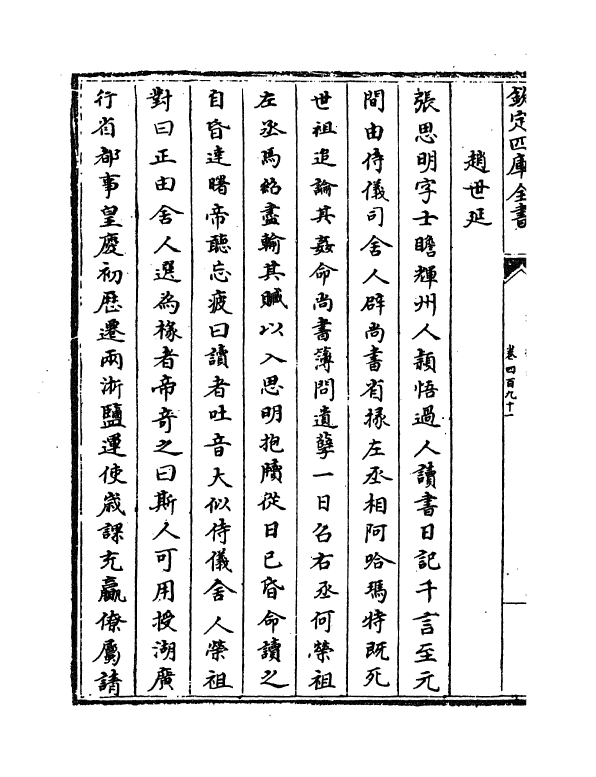 欽定四庫全書
卷四百九十一
趙世延
張思明字士瞻輝州人頴悟過人讀書日記千言至元
間由侍儀司舍人辟尚書省掾左丞相阿哈瑪特既死
世祖追論其姦命尚書簿問遺孽一日召右丞何榮祖
左丞馬紹盡輸其贓以入思明抱牘從日已昏命讀之
自昏達曙帝聽忘疲曰讀者吐音大似侍儀舍人榮祖
對曰正由舍人選為掾者帝竒之曰斯人可用授湖廣
行省都事皇慶初歴遷兩淅鹽運使嵗課充贏僚屬請